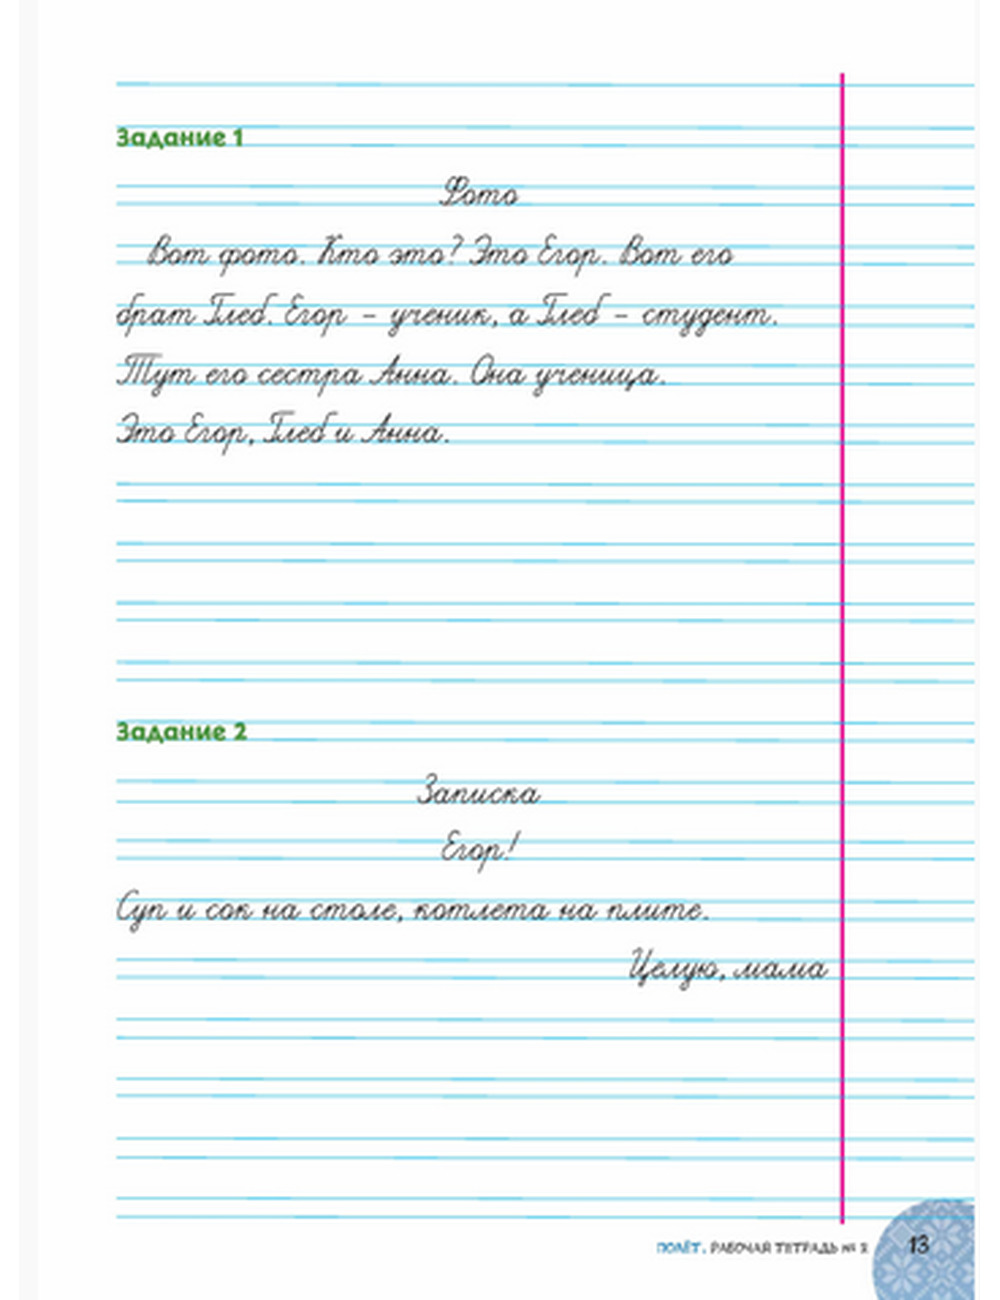 Задание 1
Фото
Вот фото. Кто это? Это Егор. Вот его
брат Глеб. Егор – ученик, а Глеб – студент.
Тут его сестра Анна. Она ученица.
Это Егор, Глеб и Анна.
Задание 2
Записка
Егор!
Суп и сок на столе, котлета на плите.
Целую, мама
ПОЛЁТ. РАБОЧАЯ ТЕТРАДЬ № 2 13